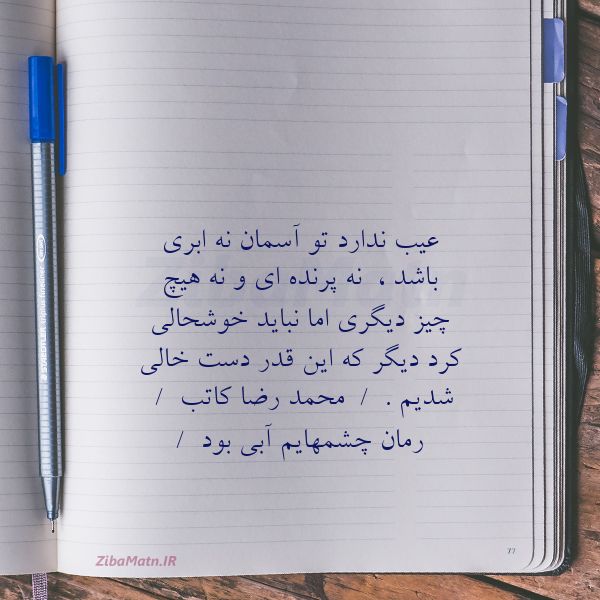 عیب ندارد تو آسمان نه ابری
باشد ، نه پرنده ای و نه هیچ
چیز دیگری اما نباید خوشحالی
کرد دیگر که این قدر دست خالی
شدیم . / محمد رضا کاتب /
رمان چشمهایم آبی بود /
ZibaMatn.IR
77